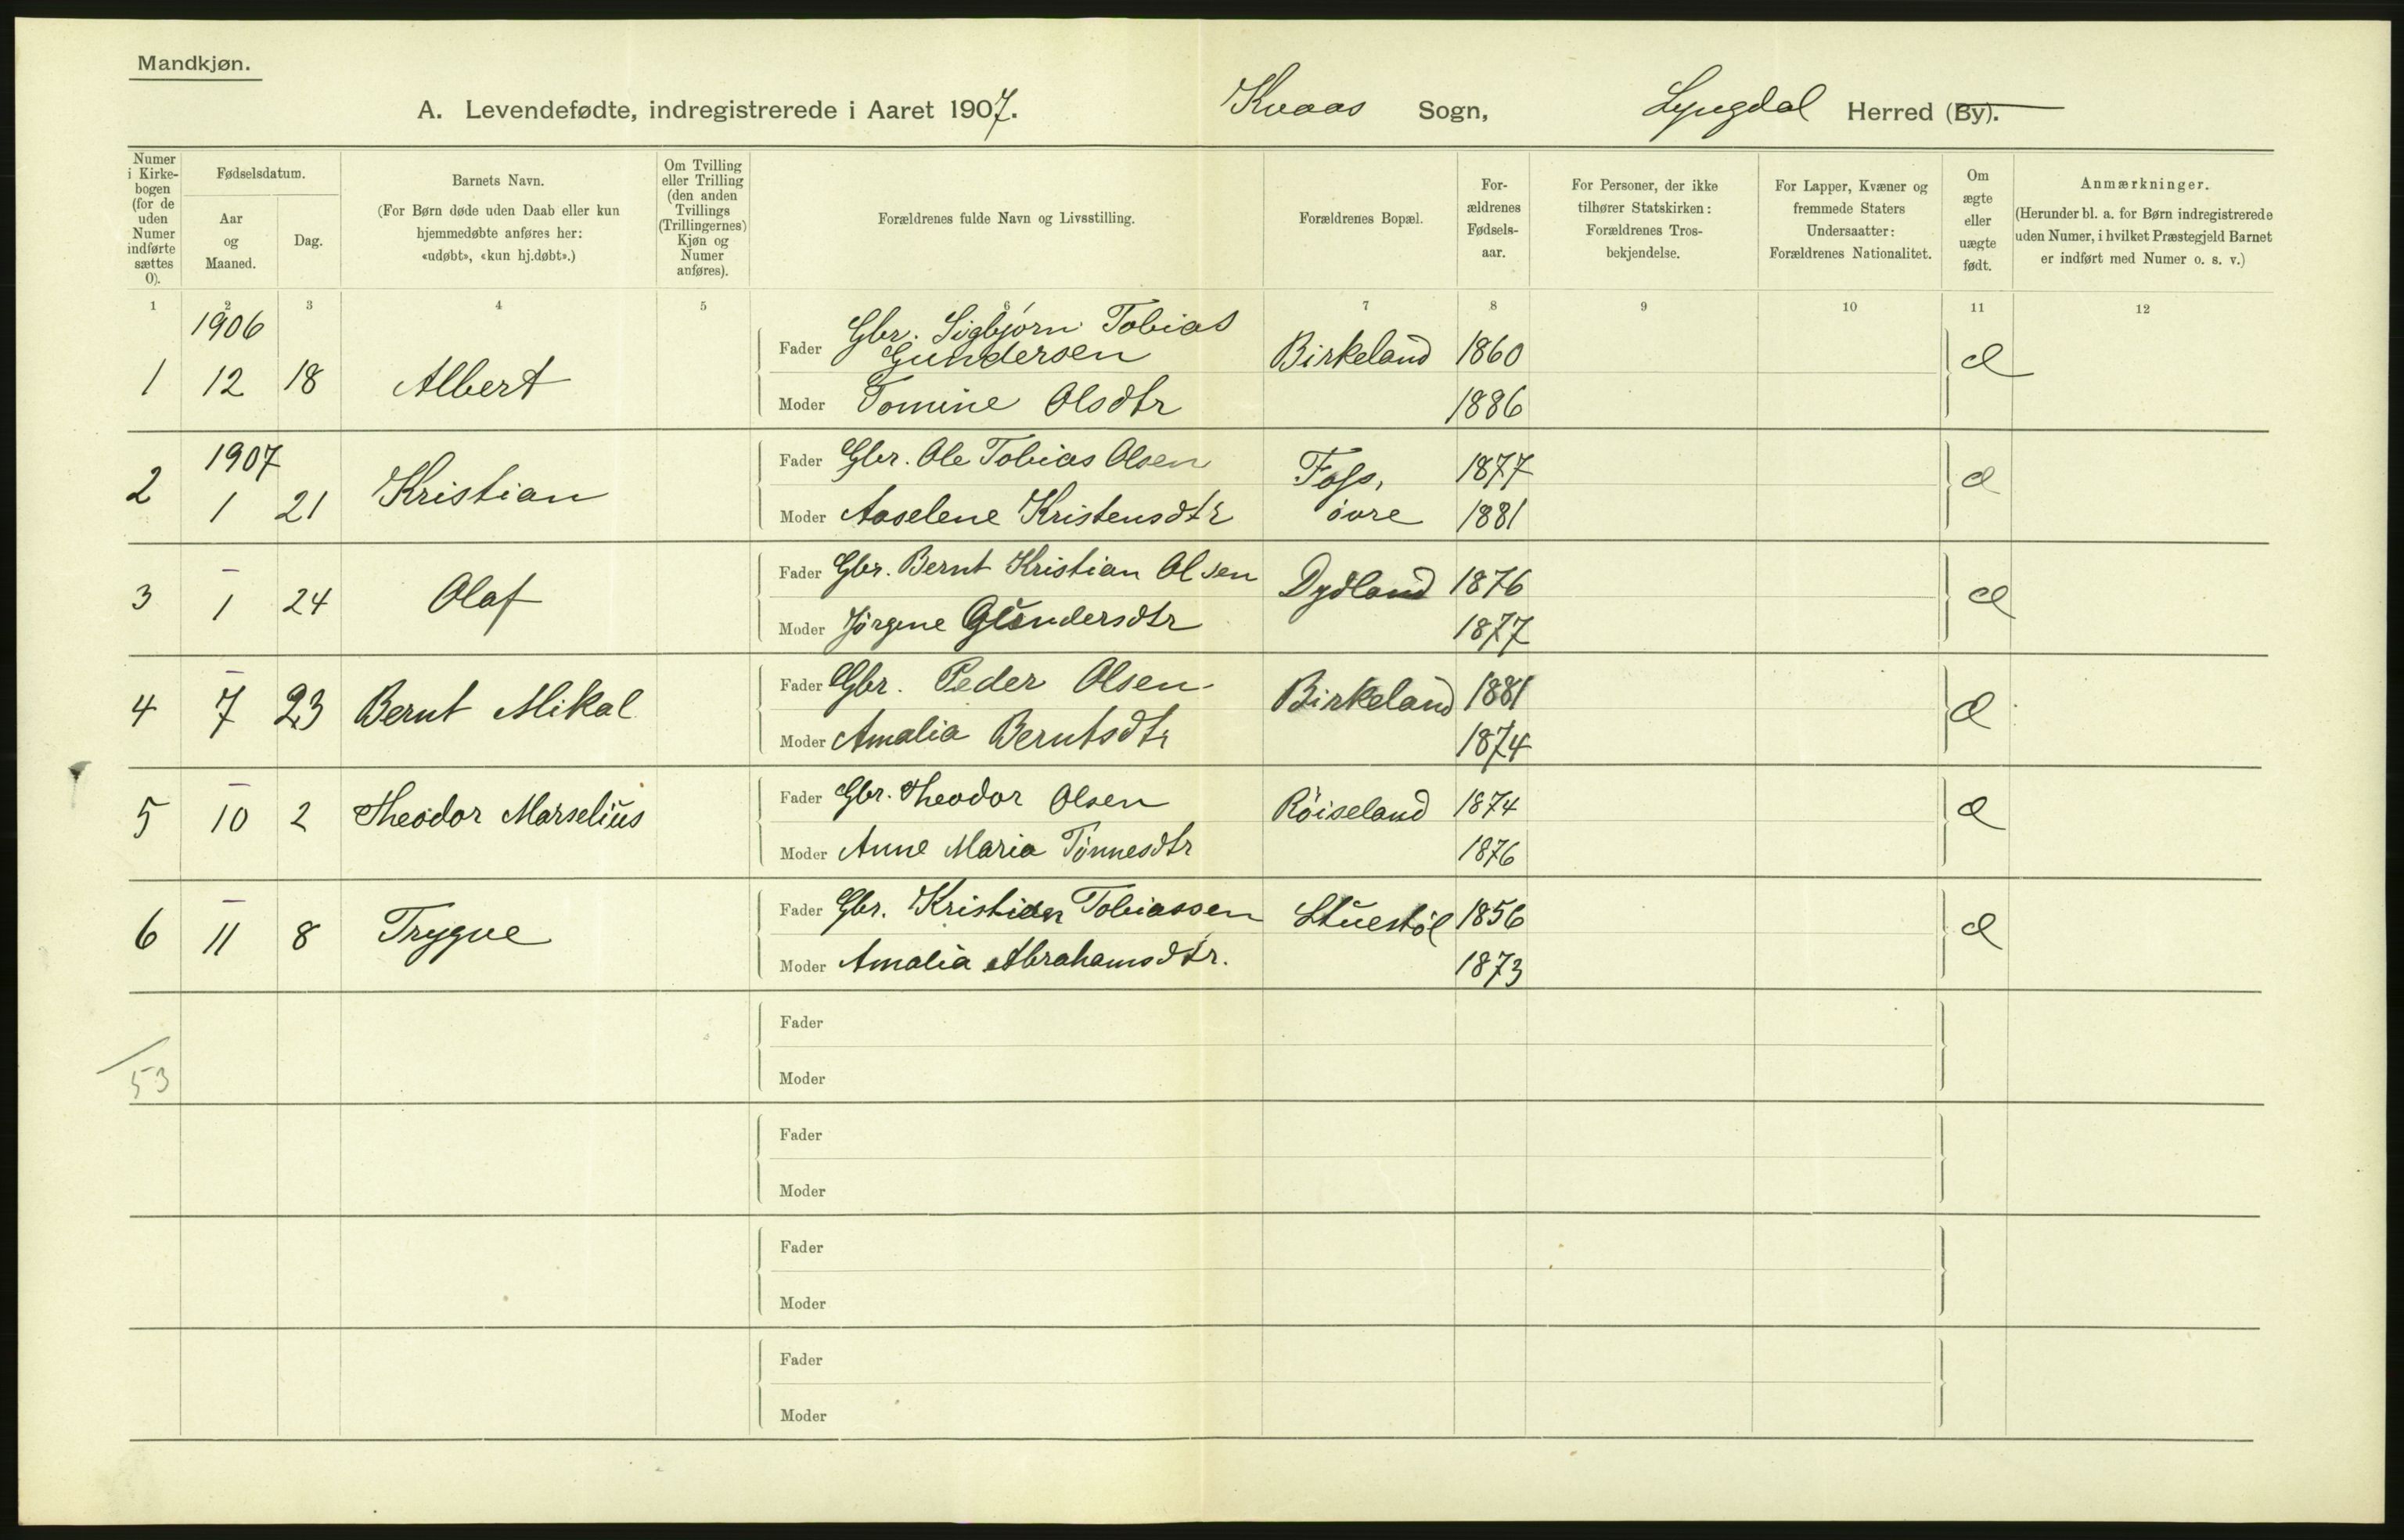 Mandkjøn.
A. Levendefødte, indregistrerede i Aaret 1907. Kvaas Sogn, Lyngdal Herred (By).
Numer i Kirkebogen (for de uden Numer indførte sættes 0).
Fødselsdatum.
Aar og Maaned.
Dag.
Barnets Navn.
(For Børn døde uden Daab eller kun hjemmedøbte anføres her: «udøbt», «kun hj.døbt».)
Om Tvilling eller Trilling (den anden Tvillings (Trillingernes) Kjøn og Numer anføres).
Forældrenes fulde Navn og Livsstilling.
Forældrenes Bopæl.
Forældrenes Fødselsaar.
For Personer, der ikke tilhører Statskirken: Forældrenes Trosbekjendelse.
For Lapper, Kvæner og fremmede Staters Undersaatter: Forældrenes Nationalitet.
Om ægte eller uægte født.
Anmærkninger.
(Herunder bl. a. for Børn indregistrerede uden Numer, i hvilket Præstegjeld Barnet er indført med Numer o. s. v.)
1 2 3 4 5 6 7 8 9 10 11 12
1906
1 12 18 Albert
Fader Gbr. Sigbjørn Tobias Gundersen Birkeland 1860 æ
Moder Tomine Olsdtr 1886
1907
2 1 21 Kristian
Fader Gbr. Ole Tobias Olsen Foss, 1877 æ
Moder Aaselene Kristensdtr övre 1881
3 – 1 24 Olaf
Fader Gbr. Bernt Kristian Olsen Dydland 1876 æ
Moder Jørgine Gundersdtr 1877
4 – 7 23 Bernt Mikal
Fader Gbr. Peder Olsen Birkeland 1881 æ
Moder Amalia Berntsdtr 1874
5 – 10 2 Theodor Marselius
Fader Gbr. Theodor Olsen Röiseland 1874 æ
Moder Anne Maria Tönnesdtr 1876
6 – 11 8 Trygve
Fader Gbr. Kristian Tobiassen Stuestöl 1856 æ
Moder Amalia Abrahamsdtr. 1873
Fader
53
Moder
Fader
Moder
Fader
Moder
Fader
Moder